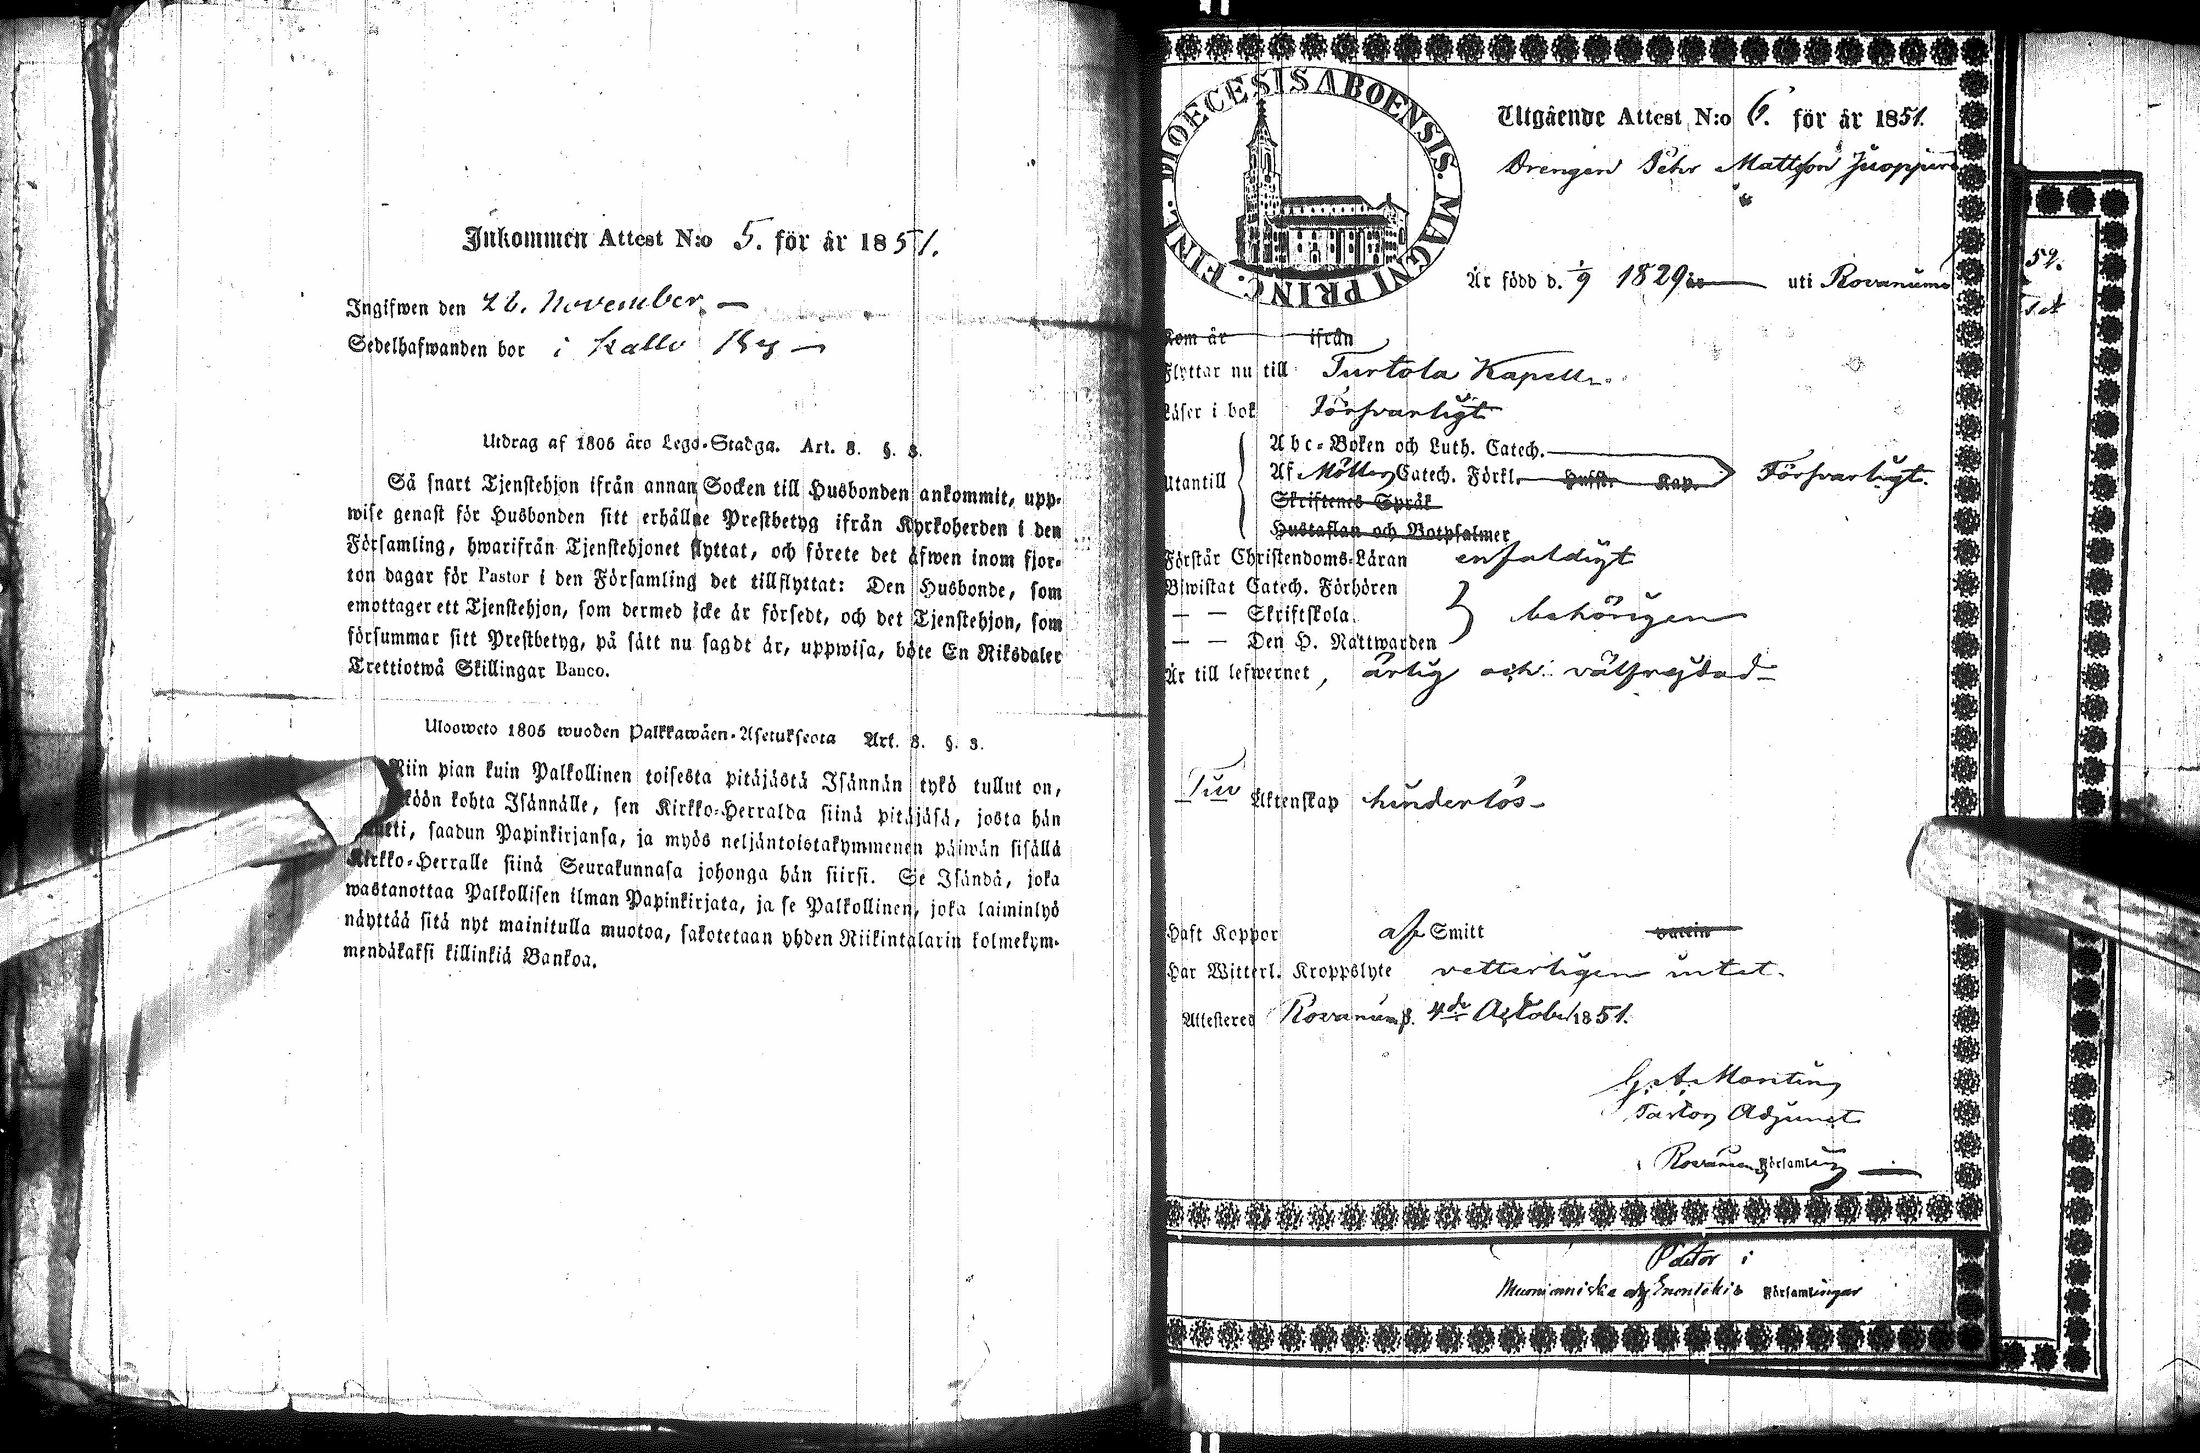 Inkommen Attest N:o 5. för år 1851.
Ingifwen den 22. November.
Sedelhafwanden bor i Kallo By
Utdrag af 1805 års Lego-Stadga. Art. 8. §. 3.
Så snart Tjenstehjon ifrån annan Socken till Husbonden ankommit, upp-
wise genast för Husbonden sitt erhållne Prestbetyg ifrån Kyrkoherden i den
Församling, hwarifrån Tjenstehjonet flyttat, och förete det äfwen inom fjor-
ton dagar för Pastor i den Församling det tillflyttat: Den Husbonde, som
emottager ett Tjenstehjon, som dermed icke är försedt, och det Tjenstehjon, som
försummar sitt Prestbetyg, på sätt nu sagdt är, uppwisa, böte En Riksdaler
Trettiotwå Skillingar Banco.
Ulosweto 1805 wuoden Palkkawäen-Asetuksesta Art. 8. §. 3.
Niin pian kuin Palkollinen toisesta pitäjästä Isännän tykö tullut on,
kohta Isännälle, sen Kirkko-Herralda siinä pitäjäsä, josta hän
saadun Papinkirjansa, ja myös neljäntoistakymmenen päiwän sisällä
Kirkko-Herralle siinä Seurakunnasa johonga hän siirsi. Se Isändä, joka
wastanottaa Palkollisen ilman Papinkirjata, ja se Palkollinen, joka laiminlyö
näyttää sitä nyt mainitulla muotoa, sakotetaan yhden Riikintalarin kolmekym-
mendäkaksi killinkiä Bankoa.
DIOECESIS ABOENSIS. MAGNI PRINC. FINL.
Utgående Attest N:o 6. för år 1851.
Drengen Pehr Mattsson
Är född d. 1/9 1829 uti Rovaniemi
Kom år ifrån
Flyttar nu till Turtola Kapell
Läser i bok försvarligt
Utantill
Abc-Boken och Luth. Catech.
Af Möllers Catech. Förkl. Hufst. Kap. Försvarligt.
Skriftenes Språk
Hustaflan och Botpsalmer
Förstår Christendoms-Läran enfaldigt
Biwistat Catech. Förhören
— — Skriftskola behörigen
— — Den H. Nattwarden
Är till lefwernet, ärlig och välfrejdad
Till Äktenskap hinderlös
Haft Koppor af Smitt vaccin
Har Witterl. Kroppslyte vetterligen intet.
Attesteres Rovaniemi 4de October 1851.
Pastors Adjunct
Rovaniemi Församling
Pastor i
Muonioniska och Enontekis Församlingar